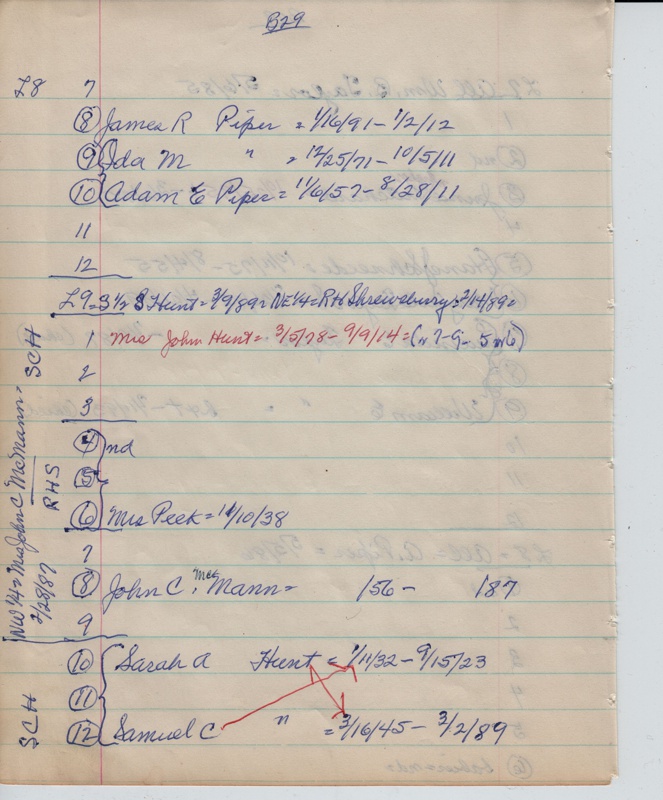 B29
L8 7
8 James R Piper = 1/16/91 - 1/2/12
9 Ida M " = 12/25/71 - 10/5/11
10 Adam E Piper = 11/6/57 - 8/28/11
11
12
L9 = S 1/2 S Hunt = 3/9/89 = NE 1/4 = R H Shrewsbury = 2/14/89 =
1 Mrs John Hunt = 3/5/78 - 9/9/14 =
2
3
4 nd
5
6 Mrs Peek = 11/10/38
7
8 John C. McMann = /56 - /87
9
10 Sarah A Hunt = 1/11/32 - 9/15/23
11
12 Samuel C " = 3/16/45 - 3/2/89
SCH
NW 1/4 = Mrs John C McMann =
2/28/87
RHS
SCH